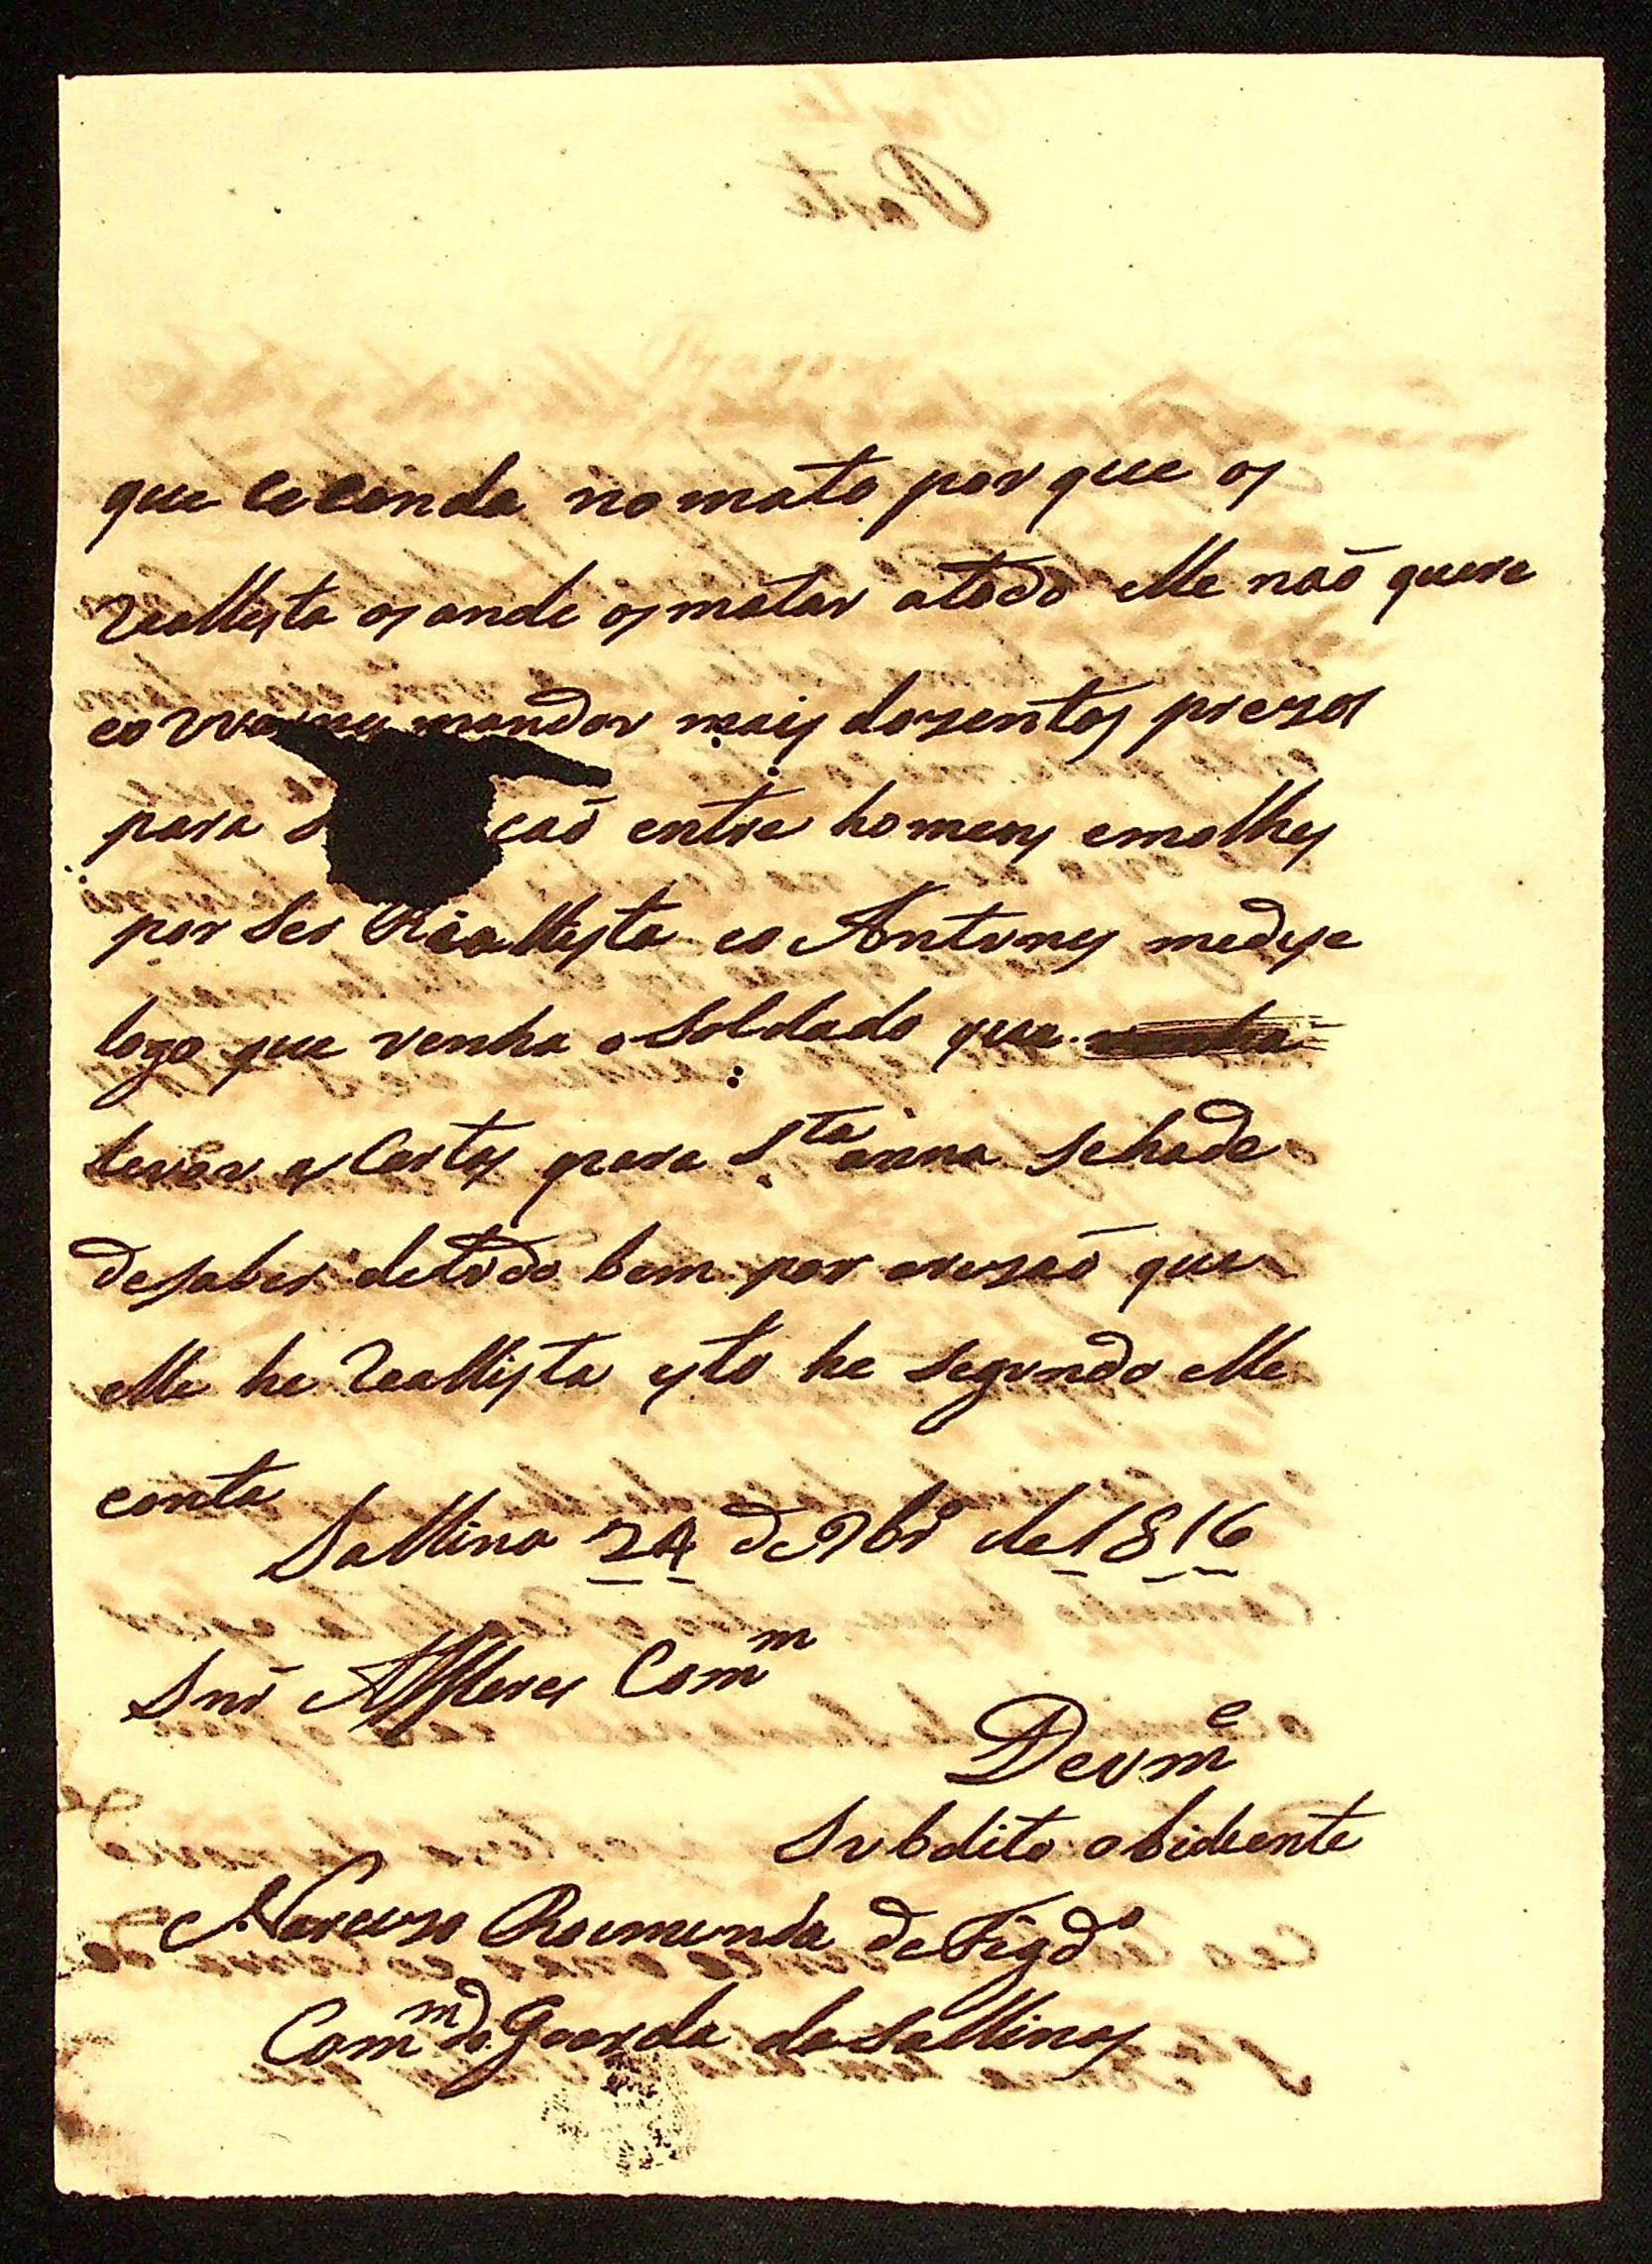 que no mato por que os
reallesta os ande os matar atodo elle não quere
eo mandar mais dozentos prezos
para cão entre homens emolhes
por Ser Riallesta eo Antunes medise
logo que venha o Soldado que
levar as Cartas para S.ta anna Sehade
desaber detodo bem por orezão que
elle he reallista esto he Segundo elle
conta
Sallina 24 de 9br.o de 1816
Snr Alfferes Com.m
Devm.e
Subdito obidiente
Narcizo Raimundo deFigd.o
Com.md da Goarda da Sallinas